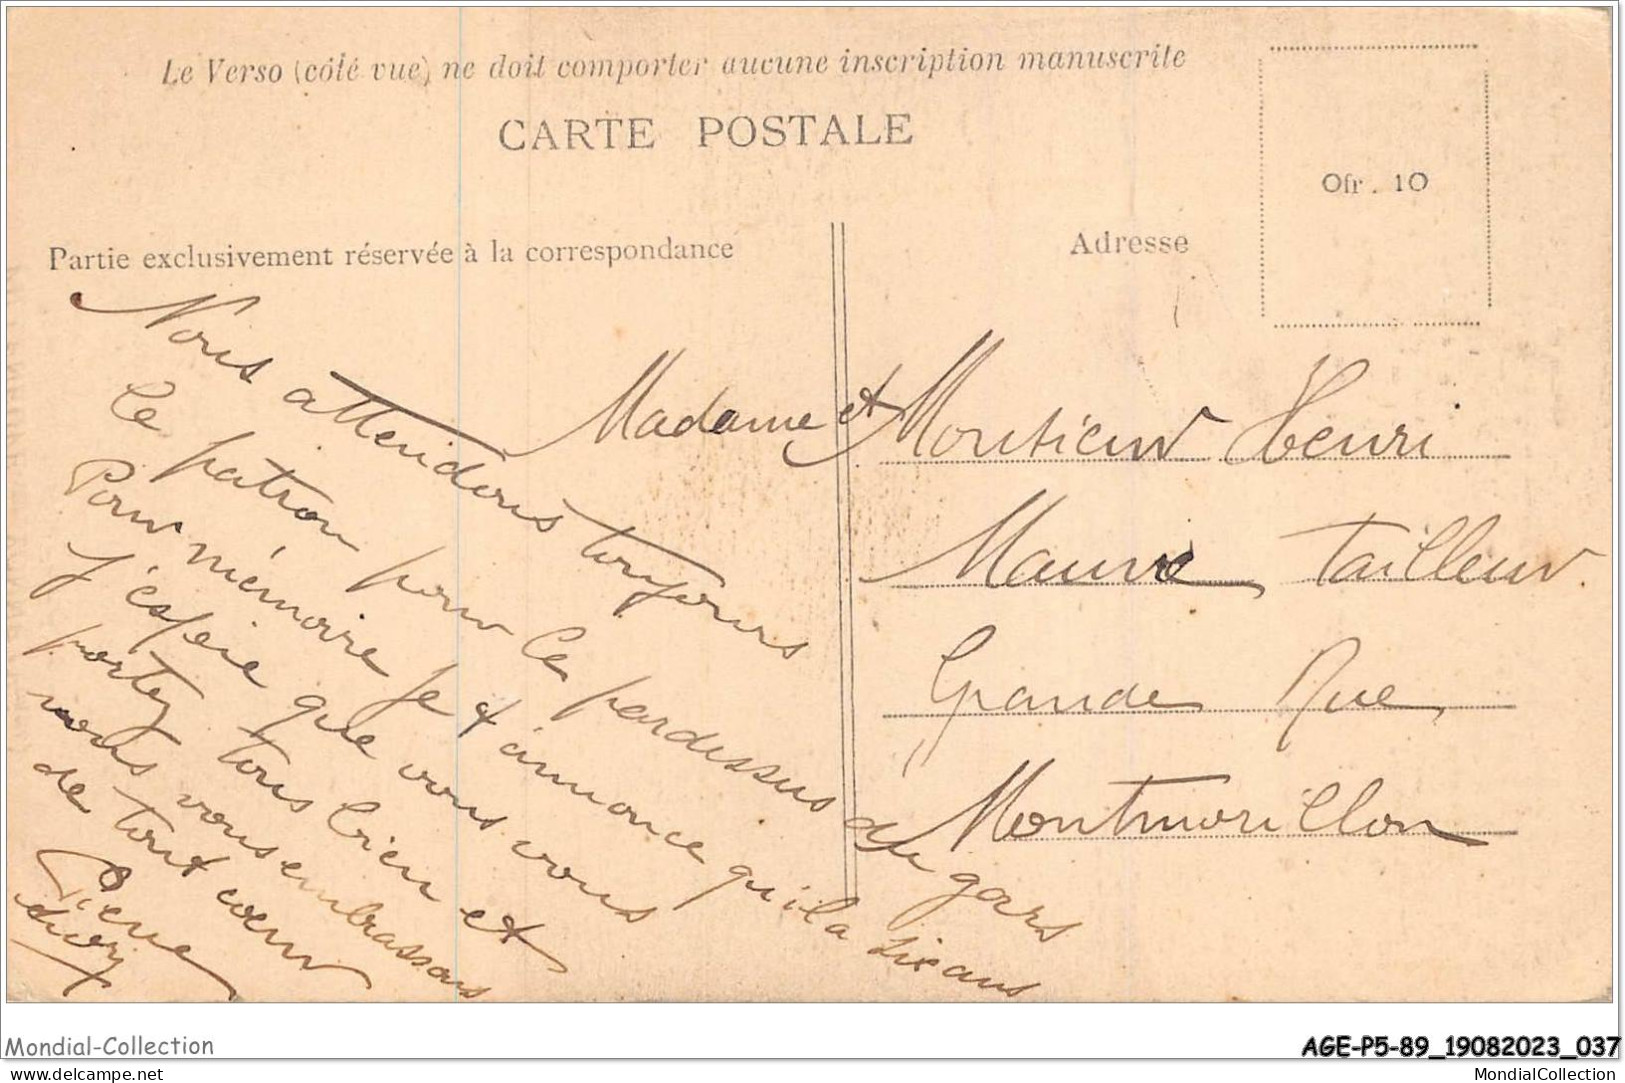 Le Verso (côté vue) ne doit comporter aucune inscription manuscrite
CARTE POSTALE
0fr. 10
Partie exclusivement réservée à la correspondance
Adresse
Nous attendons toujours
le patron pour les pardessus du gars
Pour mémoire je t'annonce qu'il a six ans
J'espère que vous vous
portez tous bien et
nous vous embrassons
de tout cœur
Pierre
Madame et Monsieur Henri
Mauve Tailleur.
Grande Rue
Montmorillon
Mondial-Collection
delcampe.net
AGE-P5-89_19082023_037
MondialCollection